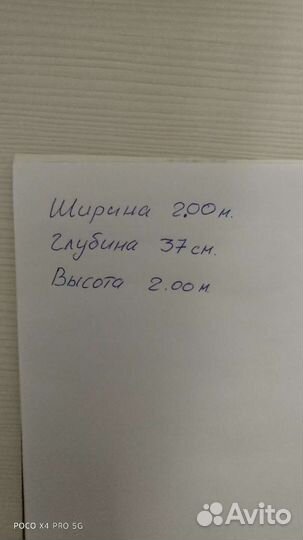 Ширина 2.00 м.
Глубина 37 см.
Высота 2.00 м
POCO X4 PRO 5G
Avito